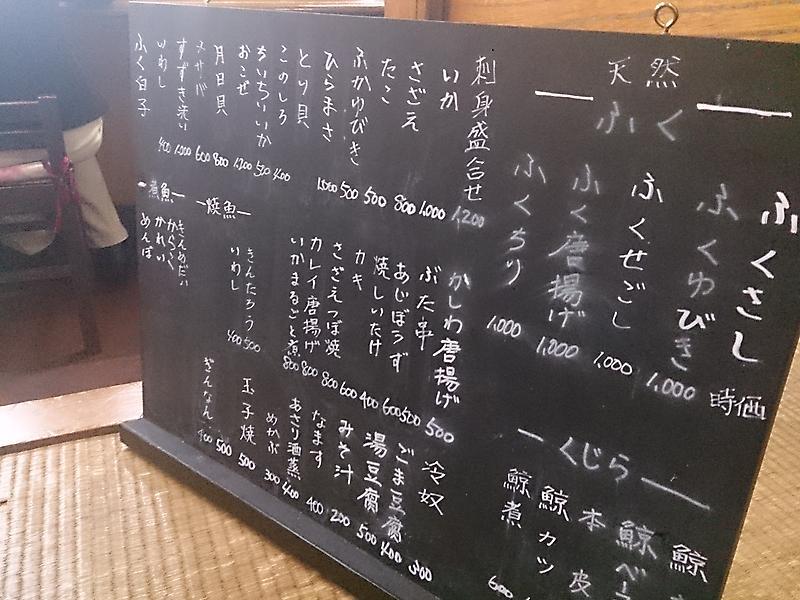 天然
ふく
ふくさし 時価
ふくゆびき 1,000
ふくせごし 1,000
ふく唐揚げ 1,000
ふくちり 1,000
くじら
鯨
鯨ベー
本皮
鯨カツ
鯨煮 600
刺身盛合せ 1,200
いか 1,000
さざえ 800
たこ 500
ふかゆびき 500
ひらまさ 1,000
とり貝
このしろ 400
ちいちいいか 500
おこぜ 1,200
月日貝 800
メサバ 600
すずき洗い 1,000
いわし 400
ふく白子
かしわ唐揚げ 500
ぶた串 500
あじぽうず 600
焼しいたけ 400
カキ 600
さざえつぼ焼 800
カレイ唐揚げ 800
いかまるごと煮 800
焼魚
きんたろう 500
いわし 400
煮魚
きんめだい
からかく
かれい
めんぼ
冷奴 300
ごま豆腐 400
湯豆腐 500
みそ汁 200
なます 400
あさり酒蒸 400
めかぶ 300
玉子焼 500
500
ぎんなん 400